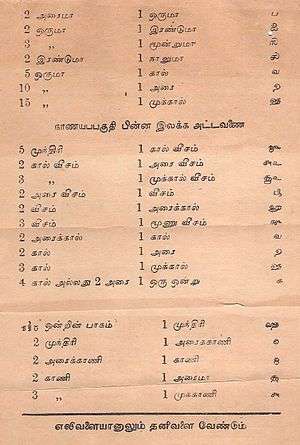 2 அரைமா 1 ஒருமா ப
2 ஒருமா 1 இரண்டுமா
3 „ 1 மூன்றுமா
2 இரண்டுமா 1 நாலுமா
5 ஒருமா 1 கால் வ
10 „ 1 அரை
15 „ 1 முக்கால்
நாணயபபகுதி பின்ன இலக்க அட்டவணை
5 முந்திரி 1 கால் வீசம்
2 கால் வீசம் 1 அரை வீசம்
3 „ 1 முக்கால் வீசம்
2 அரை வீசம் 1 வீசம்
2 வீசம் 1 அரைக்கால்
3 வீசம் 1 மூணு வீசம்
2 அரைக்கால் 1 கால் வ
2 கால் 1 அரை
3 கால் 1 முக்கால்
4 கால் அல்லது 2 அரை 1 ஒரு ஒன்று க
ஒன்றின் பாகம் 1 முந்திரி
2 முந்திரி 1 அரைக்காணி
2 அரைக்காணி 1 காணி
2 காணி 1 அரைமா
3 „ 1 முக்காணி
எலிவளையானுலும் தனிவளை வேண்டும்